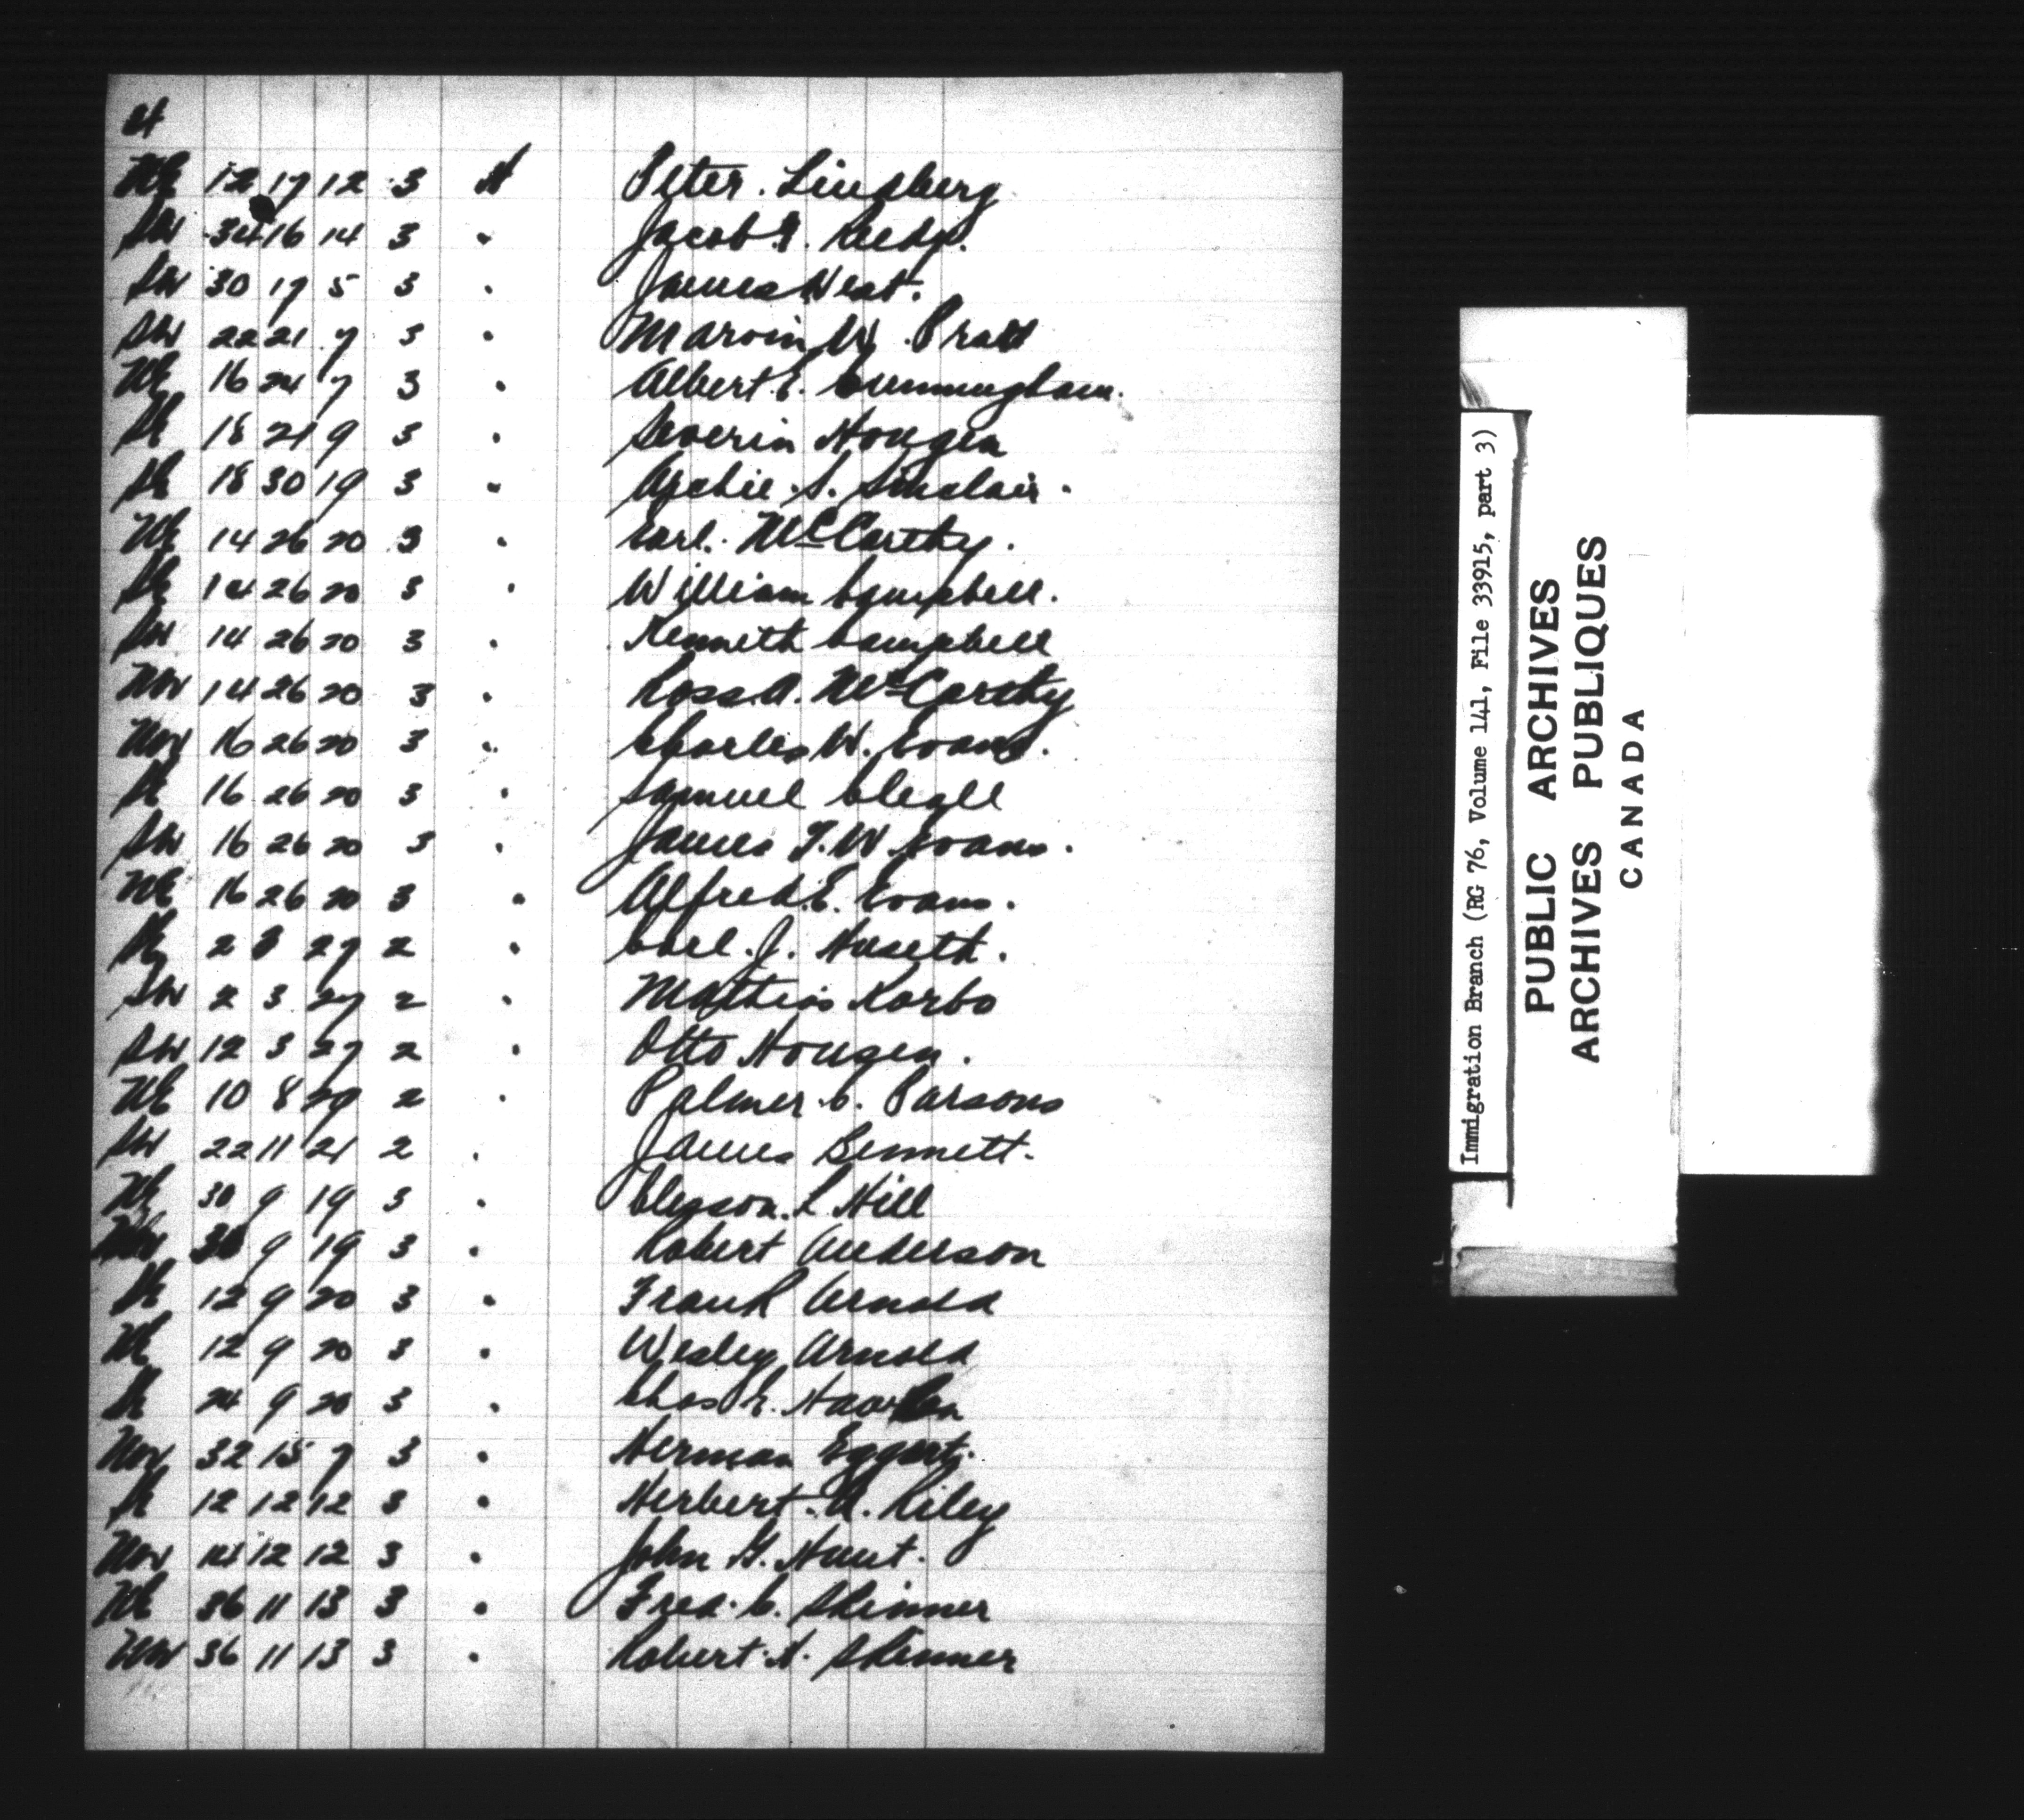 4
NE 12 17 12 3 H Peter. Lindberg
SW 34 16 14 3 " Jacob F. Reedy.
SW 30 17 5 3 " James West.
SW 22 21 7 3 " Marvin W. Pratt
NE 16 24 7 3 " Albert E. Cunningham.
SE 18 21 9 3 " Severin Hougen
SE 18 30 19 3 " Archie. S. Sinclair.
NE 14 26 20 3 " Earl. McCarthy.
SE 14 26 20 3 " William Campbell.
SW 14 26 20 3 " Kenneth Campbell
NW 14 26 20 3 " Ross. A. McCarthy
NW 16 26 20 3 " Charles W. Evans.
SE 16 26 20 3 " Samuel Clegll
SW 16 26 20 3 " James T. W Evans.
NE 16 26 20 3 " Alfred. E. Evans.
SE 2 3 27 2 " Carl. J. Huseth.
SW 2 3 27 2 " Mathias Korbo
SW 12 3 27 2 " Otto Hougen.
NE 10 8 29 2 " Palmer. C. Parsons
SW 22 11 21 2 " James Bennett.
NE 30 9 19 3 " Clesson. L Hill
NW 30 9 19 3 " Robert Anderson
SE 12 9 20 3 " Frank Arnold
NE 12 9 20 3 " Wesley Arnold
SE 24 9 20 3 " Chas E.
NW 32 15 7 3 " Herman Eggert.
SE 12 12 12 3 " Herbert. A. Riley
NW 14 12 12 3 " John G. Hunt.
NE 36 11 13 3 " Fred. C. Skinner
NW 36 11 13 3 " Robert. H. Skinner
Immigration Branch (RG 76, Volume 141, File 33915, part 3)
PUBLIC ARCHIVES
ARCHIVES PUBLIQUES
CANADA